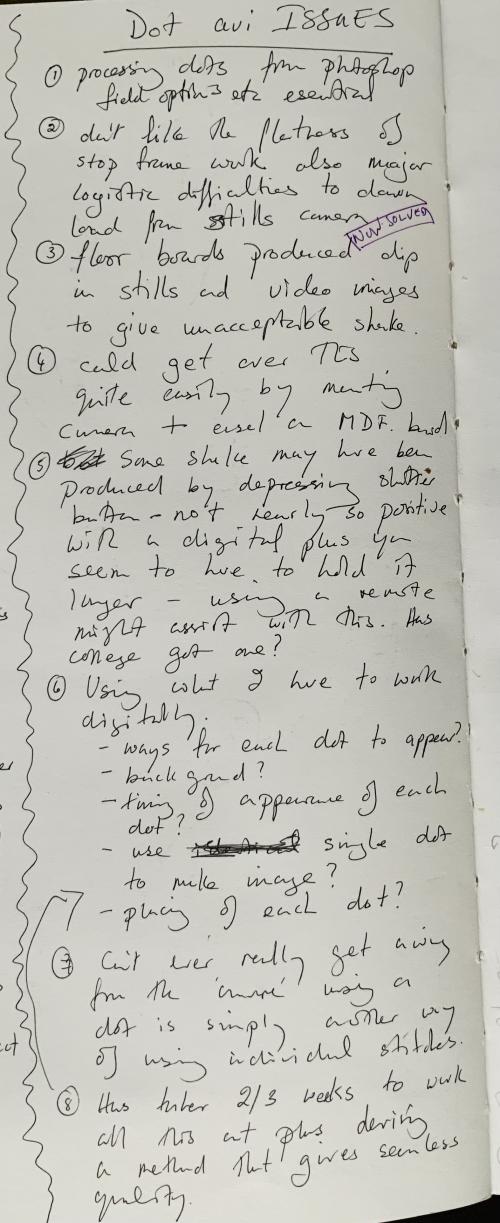 Dot avi ISSUES
① processing dots from photoshop
field options etc esential
② don't like the flatness of
stop frame work also major
logistic difficulties to down
load from stills camera
NOW SOLVED
③ floor boards produced dip
in stills and video images
to give unacceptable shake.
④ could get over this
quite easily by mounting
camera + easel on MDF. board
⑤ Some shake may have been
produced by depressing shutter
button - not nearly so positive
with a digital plus you
seem to have to hold it
longer - using a remote
might assist with this. Has
college got one?
⑥ Using what I have to work
digitally.
- ways for each dot to appear?
- back ground?
- timing of appearance of each
dot?
- use single dot
to make image?
- placing of each dot?
⑦ Can't ever really get away
from the using a
dot is simply another way
of using individual stitches.
⑧ Has taken 2/3 weeks to work
all this out plus deriving
a method that gives seamless
quality.
er
ect